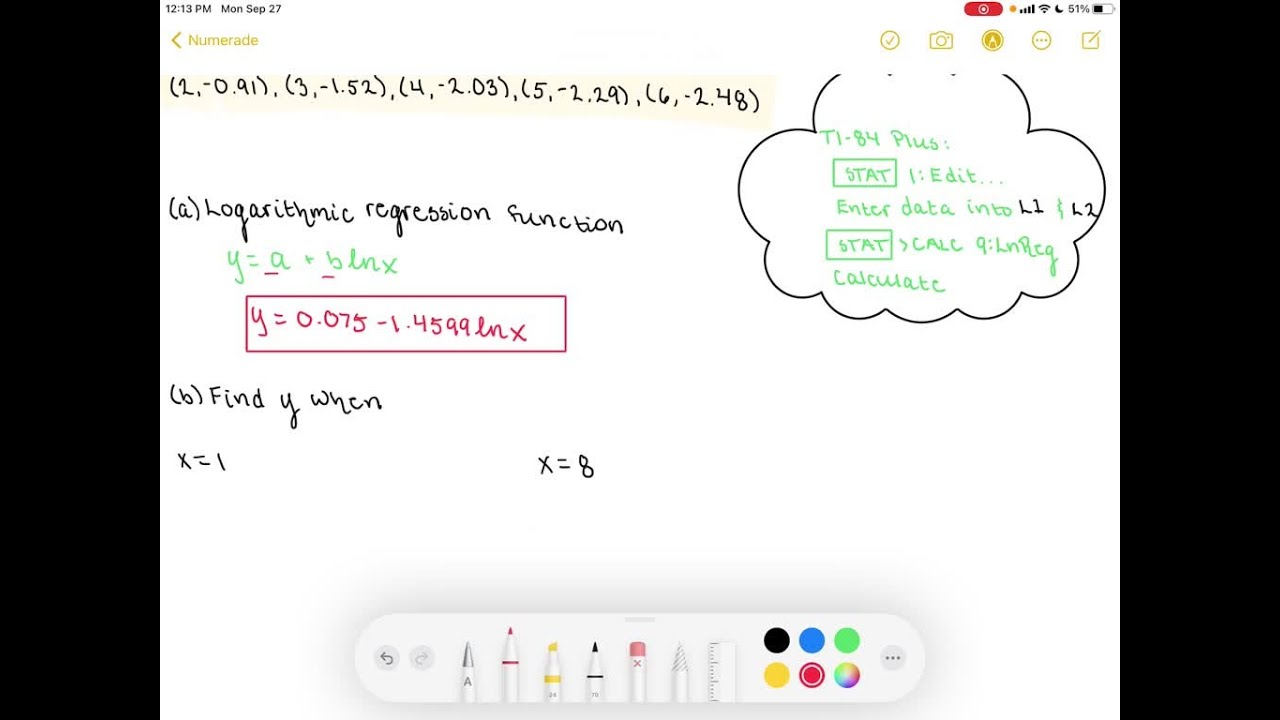 12:13 PM Mon Sep 27
51%
Numerade
(2,-0.91), (3,-1.52), (4,-2.03), (5,-2.29), (6,-2.48)
TI-84 Plus:
STAT 1:Edit...
Enter data into L1 & L2
STAT > CALC 9:LnReg
Calculate
(a) Logarithmic regression function
y = a + b ln x
y = 0.075 - 1.4599 ln x
(b) Find y when
x = 1
x = 8
A
24
70